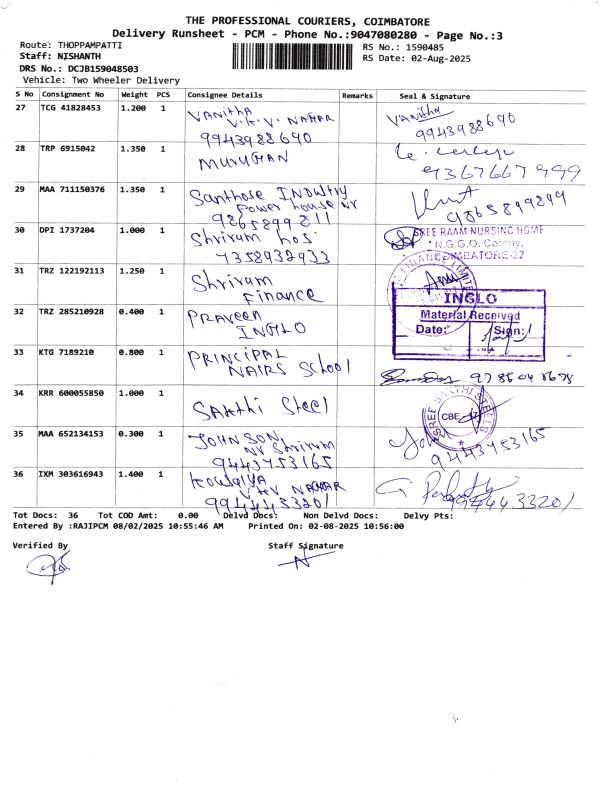 THE PROFESSIONAL COURIERS, COIMBATORE
Delivery Runsheet - PCM - Phone No.:9047080280 - Page No.:3
Route: THOPPAMPATTI
RS No.: 1590485
Staff: NISHANTH
RS Date: 02-Aug-2025
DRS No.: DCJB159048503
Vehicle: Two Wheeler Delivery
S No Consignment No Weight PCS Consignee Details Remarks Seal & Signature
27 TCG 41828453 1.200 1 Vanitha Vanitha
V.K.V. NAGAR
9943988690 9943988690
28 TRP 6915042 1.350 1 MURUGAN
9367667999
29 MAA 711150376 1.350 1 Santhose INDUItry
Power house nr
9865899811 9865899899
30 DPI 1737204 1.000 1 Shriram hos SREE RAAM NURSING HOME
7358932933 N.G.G.O. Colony,
COIMBATORE-22
31 TRZ 122192113 1.250 1 Shriram
Finance
32 TRZ 285210928 0.400 1 PRAVEEN INGLO
INGLO Material Received
Date: Sign:
33 KTG 7189210 0.800 1 PRINCIPAL
NAIRS School
34 KRR 600055850 1.000 1 SAKthi Steel SREE SAKTHI STEELS
CBE
35 MAA 652134153 0.300 1 JOHNSON
Nr Shriram
9443753165 9443753165
36 IXM 303616943 1.400 1 Kowsalya
VKV NAGAR
9944433201 9944433201
Tot Docs: 36 Tot COD Amt: 0.00 Delvd Docs: Non Delvd Docs: Delvy Pts:
Entered By :RAJIPCM 08/02/2025 10:55:46 AM Printed On: 02-08-2025 10:56:00
Verified By Staff Signature